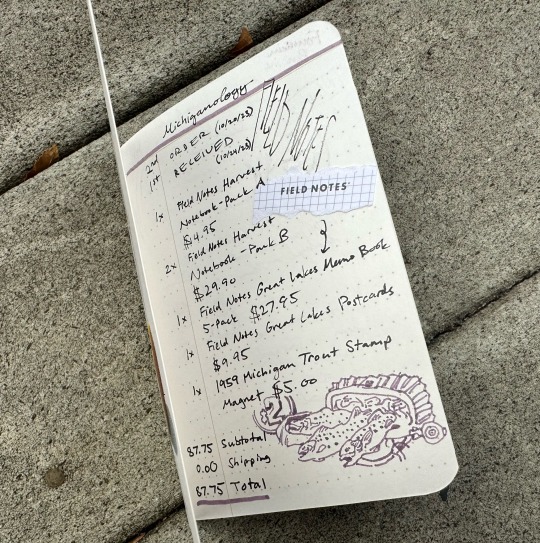 Michiganology
2nd ORDER (10/20/25)
1st RECEIVED (10/24/25)
FIELD NOTES
FIELD NOTES
1x Field Notes Harvest
Notebook - Pack A
$14.95
2x Field Notes Harvest
Notebook - Pack B
$29.90
1x Field Notes Great Lakes Memo Book
5-Pack $27.95
1x Field Notes Great Lakes Postcards
$9.95
1x 1959 Michigan Trout Stamp
Magnet $5.00
2
87.75 Subtotal
0.00 Shipping
87.75 Total